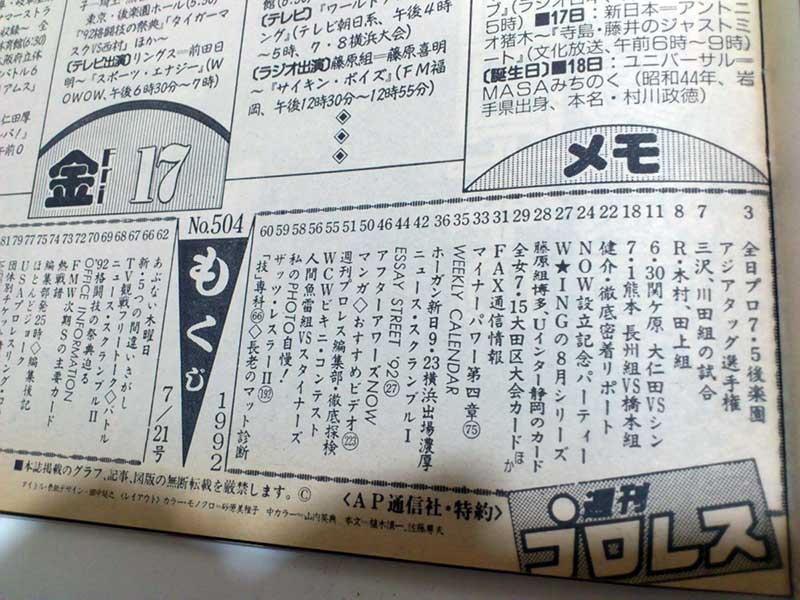 東京・後楽園ホール(6:30)
"92格闘技の祭典」「タイガーマスクVS西村」ほか~
(テレビ出演)リングス=前田日明~『スポーツ・エナジー』(WOWOW、午後6時30分~7時)
(テレビ)『ワールド
(テレビ朝日系、午後4時~5時、7・8横浜大会)
(ラジオ出演)藤原組=藤原喜明~『サイキン・ボイズ』(FM福岡、午後12時30分~12時55分)
■17日:新日本=アントニオ猪木~『寺島・藤井のジャストミート』(文化放送、午前6時~9時)
(誕生日)■18日:ユニバーサル=MASAみちのく(昭和44年、岩手県出身、本名・村川政徳)
金 Fri 17
メモ
3 全日プロ7・5後楽園
アジアタッグ選手権
7 三沢、川田組の試合
8 R・木村、田上組
11 6・30関ケ原 大仁田VSシン
18 7・1熊本 長州組VS橋本組
22 健介・徹底密着リポート
24 NOW設立記念パーティー
27 W★INGの8月シリーズ
28 藤原組博多、Uインター静岡のカード
29 全女7・15大田区大会カードほか
31 FAX通信情報
33 マイナーパワー第四章(75)
35 WEEKLY CALENDAR
36 ホーガン新日9・23横浜出場濃厚
42 ニュース・スクランブルI
44 ESSAY STREET '92(27)
46 アフターアワーズNOW
50 マンガ◇おすすめビデオ(223)
51 週刊プロレス編集部・徹底探検
55 WCWビキニ・コンテスト
56 人間魚雷組VSスタイナーズ
58 私のPHOTO自慢!
59 ザッツ・レスラーII(192)
60 「技」専科(66)◇長老のマット診断
No.504
もくじ
1992
7/21号
62 あぶない木曜日
66 新・5つの間違いさがし
67 TV観戦フリートーク◇バトル
68 ニュース・スクランブルII
69 '92格闘技の祭典迫る
70 OFFICE INFORMATION
72 FMW次期Sの主要カード
73 熱戦譜
74 編集部発25時◇編集後記
75 ほとんどジョーク
77 USAプロレス
79 団体別チケット
81
■本誌掲載のグラフ、記事、図版の無断転載を厳禁します。©
〈AP通信社・特約〉
週刊プロレス